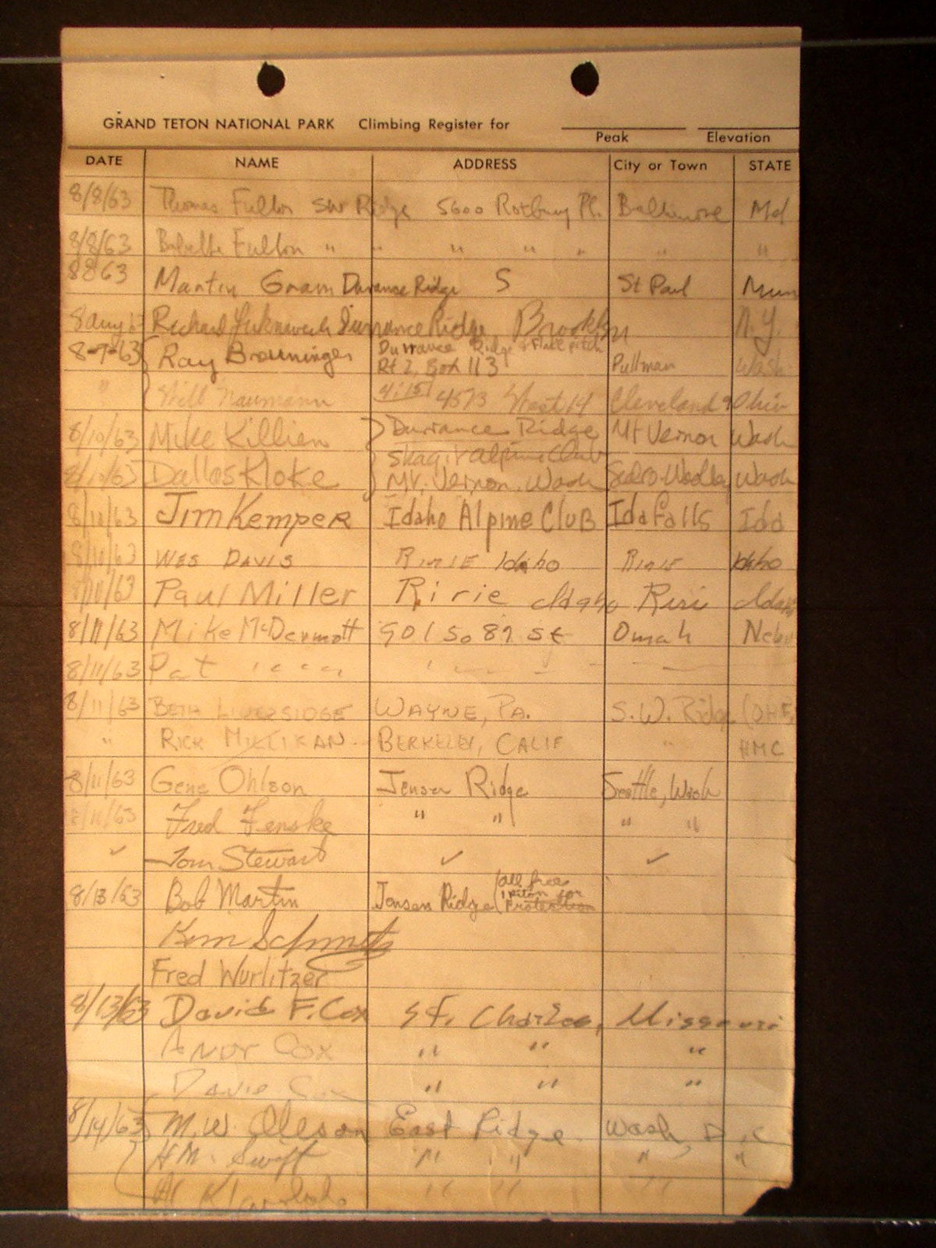 GRAND TETON NATIONAL PARK Climbing Register for
Peak Elevation
DATE NAME ADDRESS City or Town STATE
8/8/63 Thomas Fulton SW Ridge 5600 Rotbury Pl. Baltimore Md
8/8/63 Babette Fulton " " " " " " "
8863 Martin Gram Durrance Ridge S St Paul
Richard Durrance Ridge Brooklyn N.Y.
8-7-63 Ray Brouninger Durrance Ridge + Flake pitch
Rt 2, Box 113 Pullman Wash
" Will Naumann 4:15 4573 West 14 Cleveland 9 Ohio
8/10/63 Mike Killien Durrance Ridge Mt Vernon Wash
Skagit Alpine Club
8/10/63 Dallas Kloke Mt. Vernon, Wash Sedro Woolley Wash
8/10/63 Jim Kemper Idaho Alpine Club Ida falls Ida
8/10/63 WES DAVIS RIRIE Idaho RIRIE Idaho
8/10/63 Paul Miller Ririe Idaho Riri Idaho
8/11/63 Mike McDermott 901 So 87 St Omah Neb
8/11/63 Pat " " " "
8/11/63 BETH LIVERSIDGE WAYNE, PA. S.W. Ridge
" RICK MILLIKAN BERKELEY, CALIF " HMC
8/11/63 Gene Ohlson Jensen Ridge Seattle, Wash
8/11/63 Fred Fenske " " " "
✓ Tom Stewart ✓ ✓
8/13/63 Bob Martin Jensen Ridge (all free
1 piton for
protection
Kim Schmitz
Fred Wurlitzer
8/13/63 David F. Cox St. Charles, Missouri
ANDY COX " " "
DAVID " " "
8/14/63 M.W. Oleson East Ridge Wash, D.C
HM. Swift " " " "
Al " " "